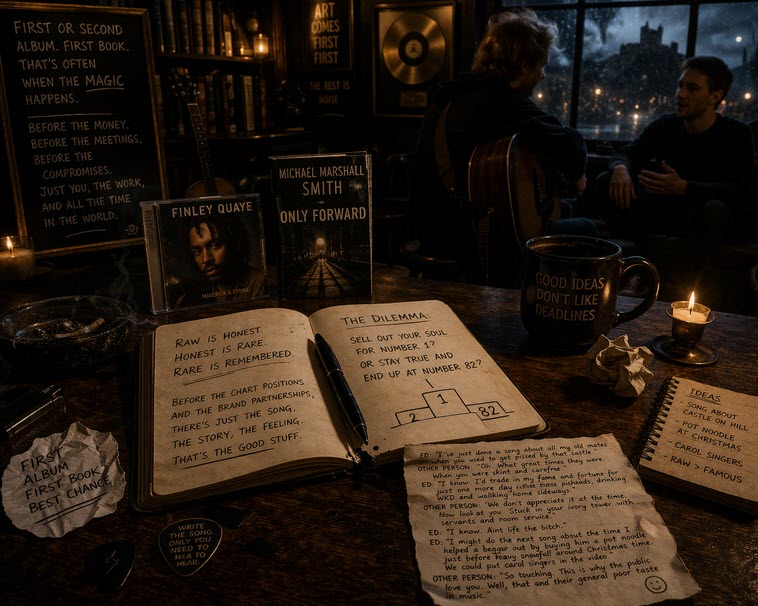 FIRST OR SECOND
ALBUM. FIRST BOOK.
THAT'S OFTEN
WHEN THE MAGIC
HAPPENS.
BEFORE THE MONEY.
BEFORE THE MEETINGS,
BEFORE THE
COMPROMISES.
JUST YOU, THE WORK,
AND ALL THE TIME
IN THE WORLD.
ART
COMES
FIRST
FIRST
THE REST IS
NOISE
FINLEY QUAYE
MAVERICK A STRIKE
MICHAEL MARSHALL
SMITH
ONLY FORWARD
GOOD IDEAS
DON'T LIKE
DEADLINES
RAW IS HONEST.
HONEST IS RARE.
RARE IS REMEMBERED.
BEFORE THE CHART POSITIONS
AND THE BRAND PARTNERSHIPS,
THERE'S JUST THE SONG,
THE STORY, THE FEELING.
THAT'S THE GOOD STUFF.
THE DILEMMA:
SELL OUT YOUR SOUL
FOR NUMBER 1?
OR STAY TRUE AND
END UP AT NUMBER 82?
2 1 82
IDEAS
SONG ABOUT
CASTLE ON HILL
- POT NOODLE
AT CHRISTMAS
- CAROL SINGERS
- RAW > FAMOUS
FIRST
ALBUM
FIRST BOOK
BEST CHANCE
WRITE
THE SONG
ONLY YOU
NEED TO
HEA TO
HEAR.
ED: "I've just done a song about all my old mates
when you used to get pissed by that castle."
OTHER PERSON: "Oh. What great times they were.
When you were skint and carefree."
ED: "I know. I'd trade in my fame and fortune for
just one more day those pissheads, drinking
WKD and walking home sideways."
OTHER PERSON: "We don't appreciate it at the time.
Now look at you. Stuck in your ivory tower with
servants and room service."
ED: "I know. Aint life the bitch."
ED: "I might do the next song about the time I
helped a beggar out by buying him a pot noodle
just before heavy snowfall around Christmas time.
We could put carol singers in the video"
OTHER PERSON: "So touching. This is why the public
love you. Well, that and their general poor taste
in music."